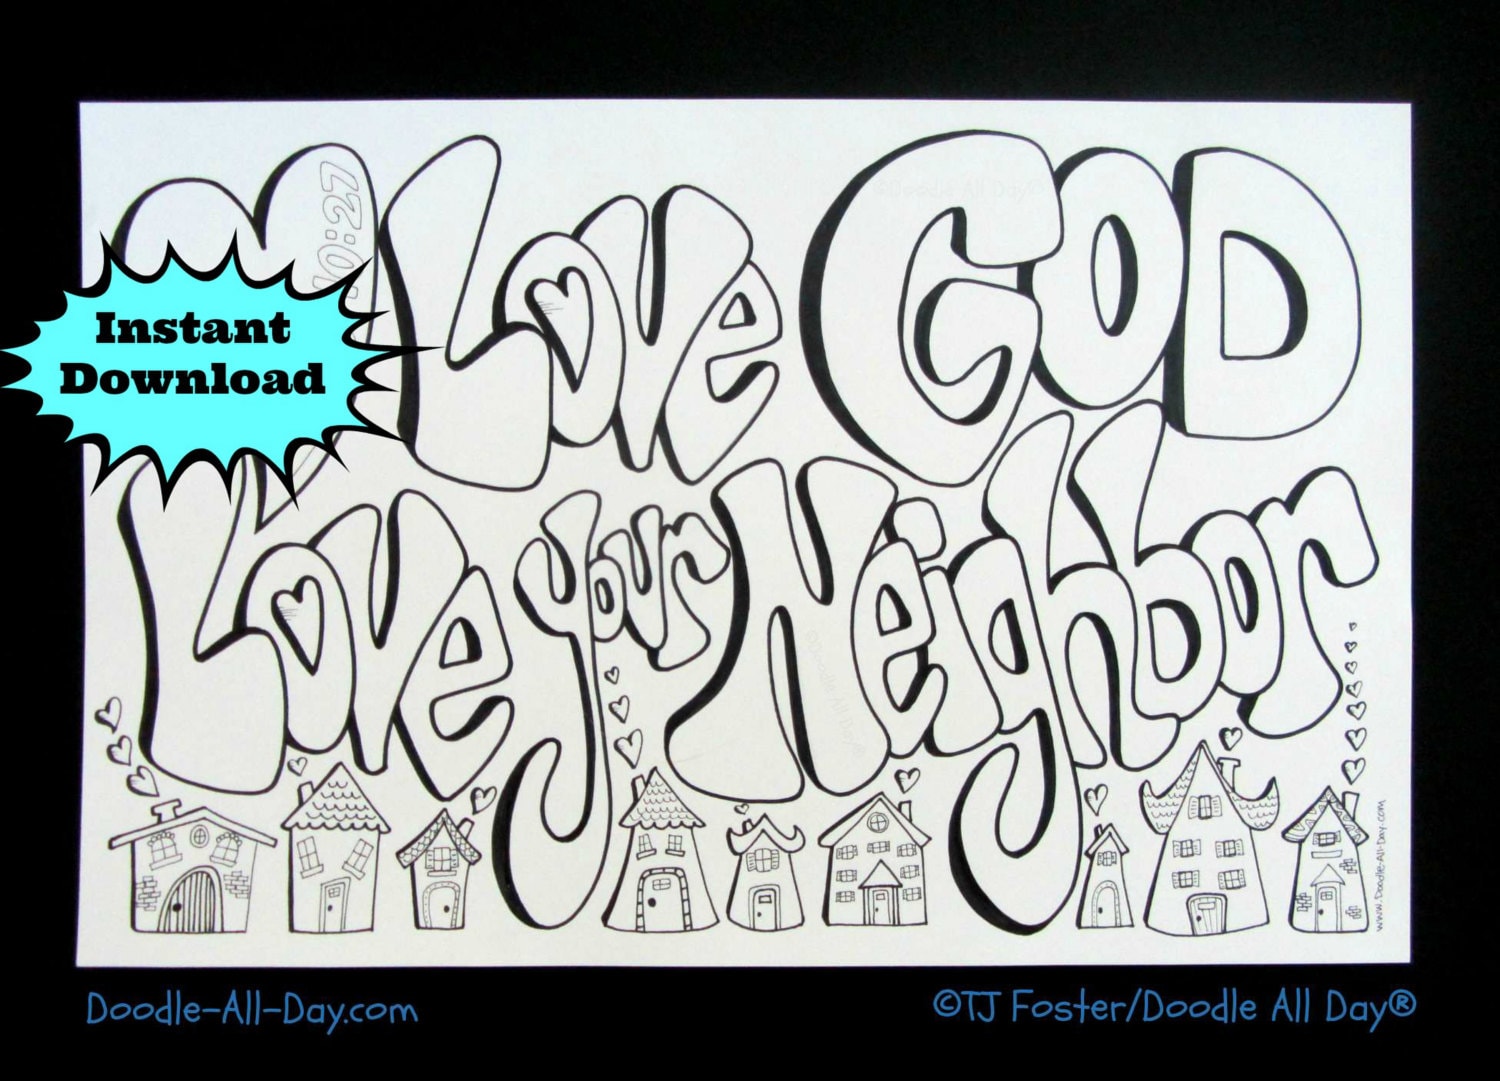 10:27
Love GOD
Instant
Download
Love your Neighbor
©Doodle All Day®
©Doodle All Day®
www.Doodle-All-Day.com
Doodle-All-Day.com
©TJ Foster/Doodle All Day®